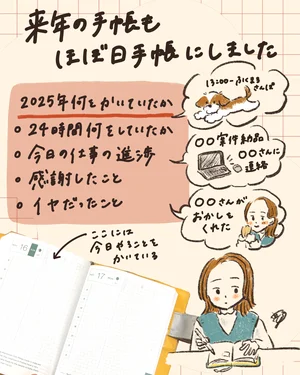 来年の手帳も
ほぼ日手帳にしました
2025年何をかいていたか
• 24時間何をしていたか
• 今日の仕事の進捗
• 感謝したこと
• イヤだったこと
13:00〜ふくまる
さんぽ
〇〇案件納品
〇〇さんに
連絡
〇〇さんが
おかしを
くれた
ここには
今日やることを
かいている
16
17